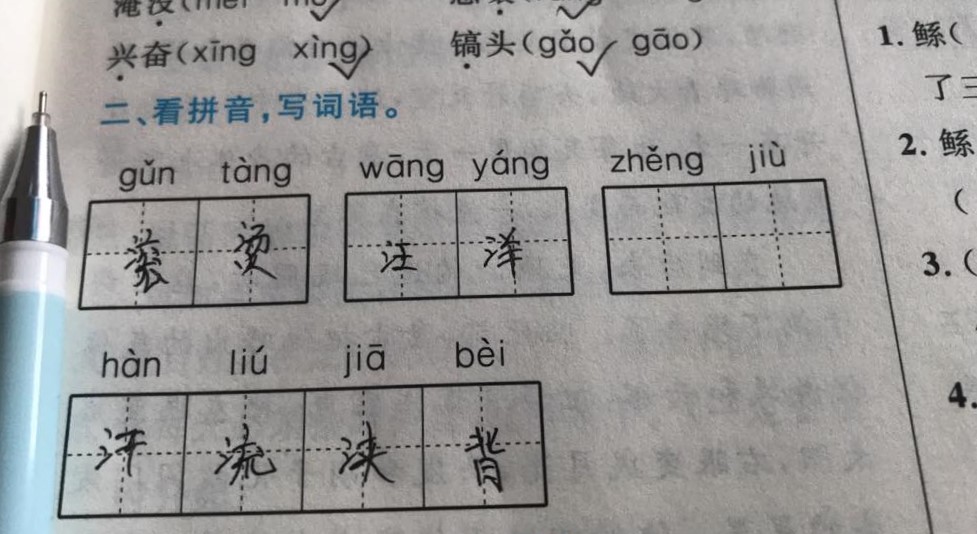 淹没(méi mò)
兴奋(xīng xìng) 镐头(gǎo gāo)
二、看拼音,写词语。
gǔn tàng wāng yáng zhěng jiù
滚 烫 汪 洋
hàn liú jiā bèi
汗 流 浃 背
1. 鲧(
了三
2. 鲧
(
3. (
4.